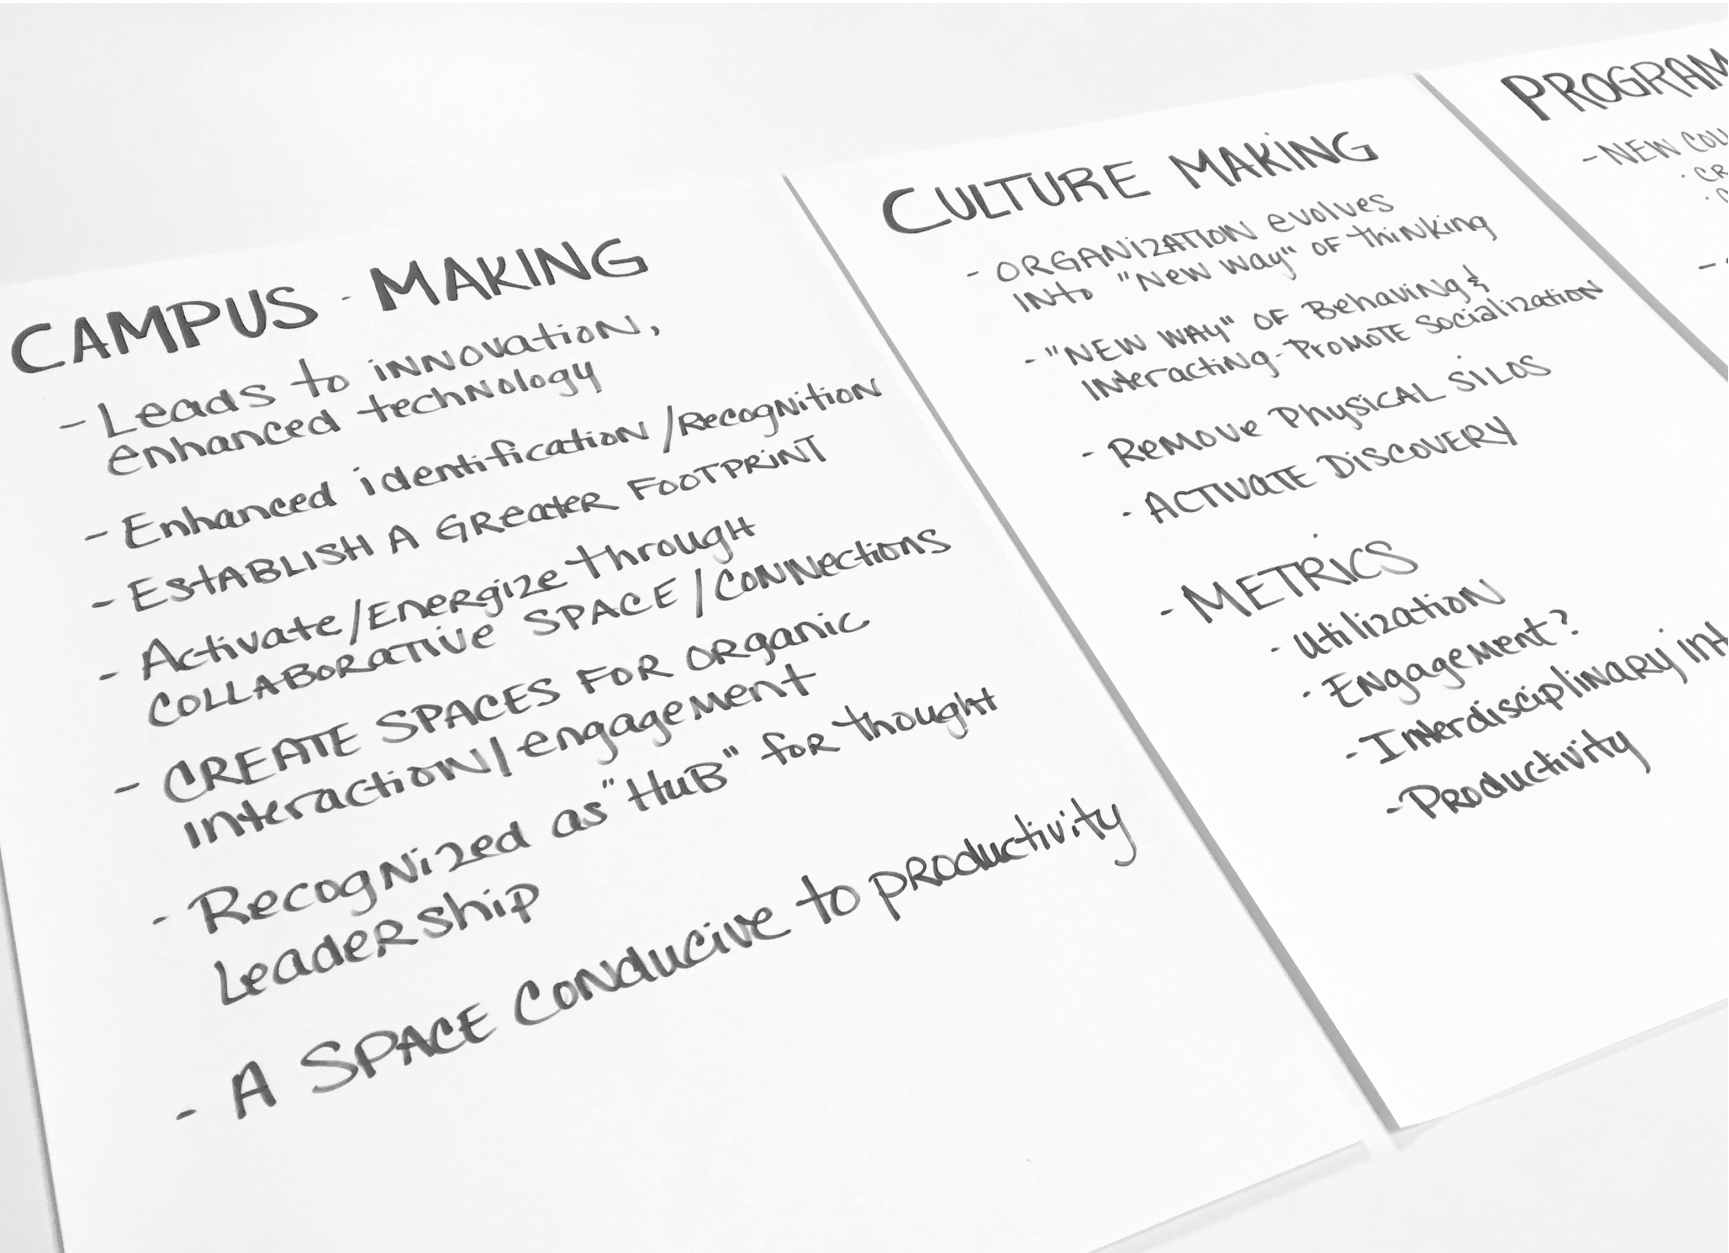 CAMPUS - MAKING
- Leads to innovation,
enhanced technology
- Enhanced identification/Recognition
- ESTABLISH A GREATER FOOTPRINT
- Activate/Energize through
COLLABORATIVE SPACE/CONNECTIONS
- CREATE SPACES FOR ORGANIC
INTERACTION/engagement
- Recognized as "HUB" for thought
Leadership
- A SPACE CONDUCIVE to productivity
CULTURE MAKING
- ORGANIZATION evolves
INTO "New way" OF thinking
- "NEW WAY" OF Behaving &
Interacting-PROMOTE Socialization
- Remove Physical SILOS
- ACTIVATE DISCOVERY
- METRICS
- Utilization
- Engagement?
- Interdisciplinary int
- Productivity
PROGRAM
- NEW COLL
· CR